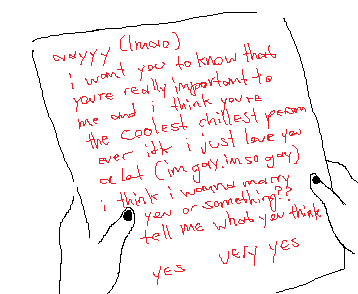 ayyyy (lmao)
i want you to know that
you're really important to
me and i think you're
the coolest chillest person
ever idk i just love you
a lot (im gay.im so gay)
i think i wanna marry
you or something??
tell me what you think
yes very yes